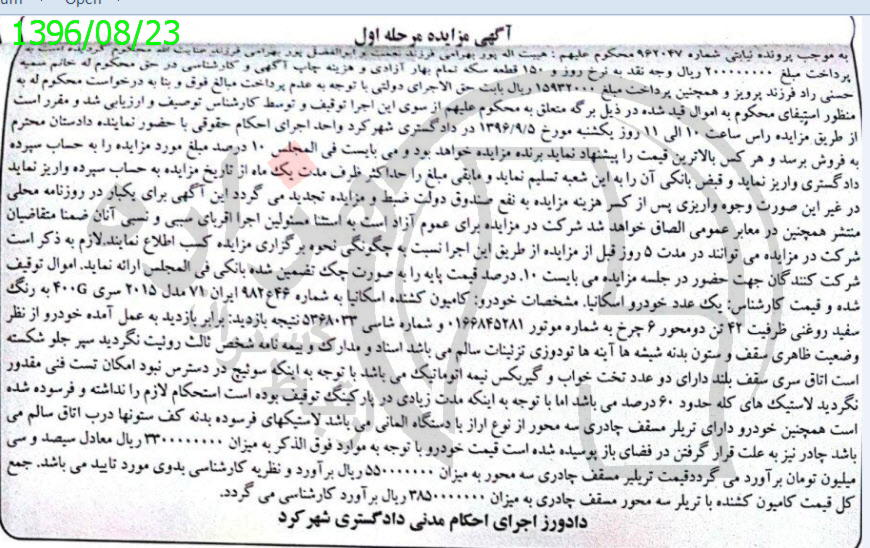 1396/08/23
آگهی مزایده مرحله اول
به موجب پرونده نیابتی شماره ۹۶۲۰۴۷ محکوم علیهم : هیبت اله پور بهرامی فرزند نعمت و ابوالفضل پور بهرامی فرزند عنایت اله محکوم گردیده است به
پرداخت مبلغ ۲۰۰۰۰۰۰۰۰ ریال وجه نقد به نرخ روز و ۱۵۰ قطعه سکه تمام بهار آزادی و هزینه چاپ آگهی و کارشناسی در حق محکوم له خانم سمیه
حسنی راد فرزند پرویز و همچنین پرداخت مبلغ ۱۵۹۳۲۰۰۰ ریال بابت حق الاجرای دولتی با توجه به عدم پرداخت مبالغ فوق و بنا به درخواست محکوم له به
منظور استیفای محکوم به اموال قید شده در ذیل برگه متعلق به محکوم علیهم از سوی این اجرا توقیف و توسط کارشناس توصیف و ارزیابی شد و مقرر است
از طریق مزایده راس ساعت ۱۰ الی ۱۱ روز یکشنبه مورخ ۱۳۹۶/۹/۵ در دادگستری شهرکرد واحد اجرای احکام حقوقی با حضور نماینده دادستان محترم
به فروش برسد و هر کس بالاترین قیمت را پیشنهاد نماید برنده مزایده خواهد بود و می بایست فی المجلس ۱۰ درصد مبلغ مورد مزایده را به حساب سپرده
دادگستری واریز نماید و قبض بانکی آن را به این شعبه تسلیم نماید و مابقی مبلغ را حداکثر ظرف مدت یک ماه از تاریخ مزایده به حساب سپرده واریز نماید
در غیر این صورت وجوه واریزی پس از کسر هزینه مزایده به نفع صندوق دولت ضبط و مزایده تجدید می گردد این آگهی برای یکبار در روزنامه محلی
منتشر همچنین در معابر عمومی الصاق خواهد شد شرکت در مزایده برای عموم آزاد است به استثنا مسئولین اجرا اقربای سببی و نسبی آنان ضمنا متقاضیان
شرکت در مزایده می توانند در مدت ۵ روز قبل از مزایده از طریق این اجرا نسبت به چگونگی نحوه برگزاری مزایده کسب اطلاع نمایند.لازم به ذکر است
شرکت کنندگان جهت حضور در جلسه مزایده می بایست ۱۰ درصد قیمت پایه را به صورت چک تضمین شده بانکی فی المجلس ارائه نماید. اموال توقیف
شده و قیمت کارشناس: یک عدد خودرو اسکانیا. مشخصات خودرو: کامیون کشنده اسکانیا به شماره ۴۶ع۹۸۲ ایران ۷۱ مدل ۲۰۱۵ سری ۴۰۰G به رنگ
سفید روغنی ظرفیت ۴۲ تن دومحور ۶ چرخ به شماره موتور ۰۱۶۶۸۴۵۲۸۱ و شماره شاسی ۵۳۶۸۰۳۳ نتیجه بازدید: برابر بازدید به عمل آمده خودرو از نظر
وضعیت ظاهری سقف و ستون بدنه شیشه ها آینه ها تودوزی تزئینات سالم می باشد اسناد و مدارک و بیمه نامه شخص ثالث رویت نگردید سپر جلو شکسته
است اتاق سری سقف بلند دارای دو عدد تخت خواب و گیربکس نیمه اتوماتیک می باشد با توجه به اینکه سوئیچ در دسترس نبود امکان تست فنی مقدور
نگردید لاستیک های کله حدود ۶۰ درصد می باشد اما با توجه به اینکه مدت زیادی در پارکینگ توقیف بوده است استحکام لازم را نداشته و فرسوده شده
است همچنین خودرو دارای تریلر مسقف چادری سه محور از نوع اراز با دستگاه المانی می باشد لاستیکهای فرسوده بدنه کف ستونها درب اتاق سالم می
باشد چادر نیز به علت قرار گرفتن در فضای باز پوسیده شده است قیمت خودرو با توجه به موارد فوق الذکر به میزان ۳۳۰۰۰۰۰۰۰۰ ریال معادل سیصد و سی
میلیون تومان برآورد می گرددقیمت تریلیر مسقف چادری سه محور به میزان ۵۵۰۰۰۰۰۰۰ ریال برآورد و نظریه کارشناسی بدوی مورد تایید می باشد. جمع
کل قیمت کامیون کشنده با تریلر سه محور مسقف چادری به میزان ۳۸۵۰۰۰۰۰۰۰ ریال برآورد کارشناسی می گردد.
دادورز اجرای احکام مدنی دادگستری شهرکرد